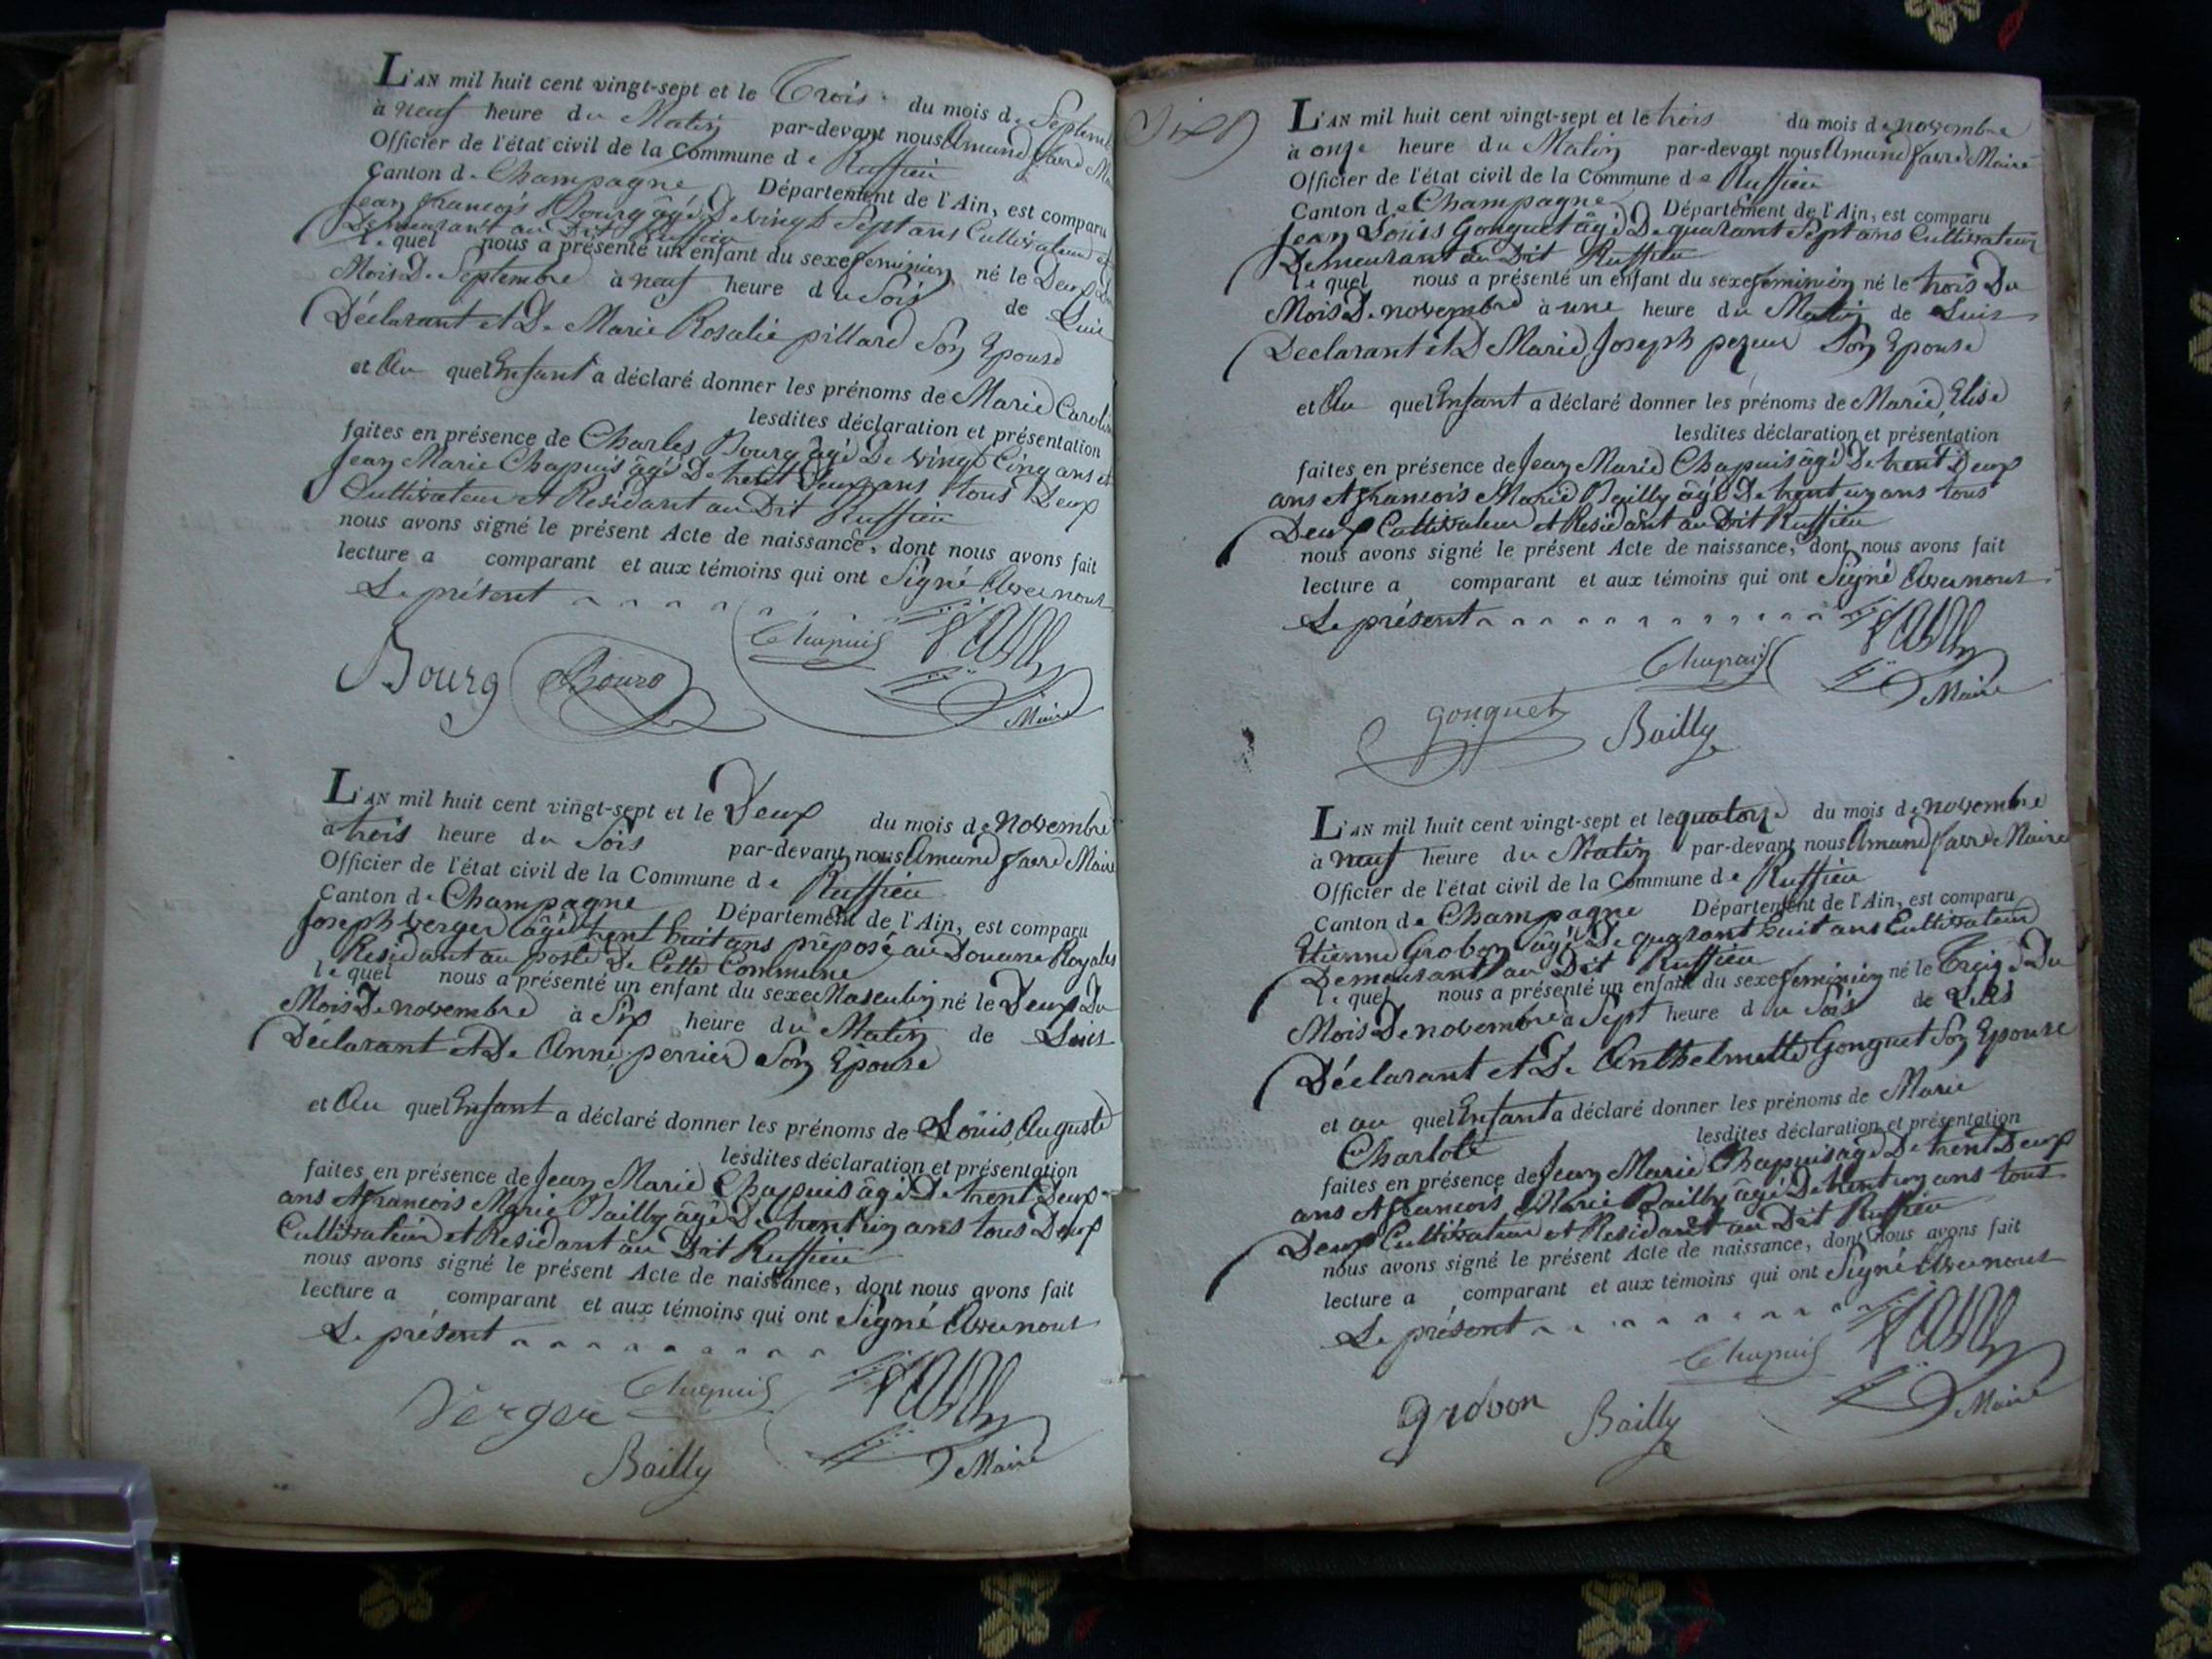 L'AN mil huit cent vingt-sept et le Trois du mois de Septemb
à neuf heure du Matin par-devant nous Amand favre
Officier de l'état civil de la Commune de Ruffieu
Canton de Champagne Département de l'Ain, est comparu
Jean francois Bourg âgé De vingt Sept ans Cultivateur
Demeurant au Dit Ruffieu
le quel nous a présenté un enfant du sexe feminin né le Deux
Mois De Septembre à neuf heure du Soir de Lui
Déclarant et De Marie Rosalie pillard Son Epouse
et Au quel Enfant a déclaré donner les prénoms de Marie Carolin
lesdites déclaration et présentation
faites en présence de Charles Bourg âgé De vingt Cinq ans et
Jean Marie Chapuis âgé De trent Deux ans tous Deux
Cultivateur et Residant au Dit Ruffieu
nous avons signé le présent Acte de naissance, dont nous avons fait
lecture a comparant et aux témoins qui ont Signé Avec nous
Le présent
Chapuis
Bourg Bourg
Maire
L'AN mil huit cent vingt-sept et le Deux du mois de novembre
à trois heure du Soir par-devant nous Amand favre Maire
Officier de l'état civil de la Commune de Ruffieu
Canton de Champagne Département de l'Ain, est comparu
Joseph verger âgé trent huit ans préposé au Douane Royales
Residant au poste De Cette Commune
le quel nous a présenté un enfant du sexe Masculin né le Deux Du
Mois De novembre à Six heure du Matin de Luis
Déclarant et De Anne perrier Son Epouse
et Au quel Enfant a déclaré donner les prénoms de Loüis Auguste
lesdites déclaration et présentation
faites en présence de Jean Marie Chapuis âgé De trent Deux
ans et francois Marie Bailly âgé De trent un ans tous Deux
Cultivateur et Residant au Dit Ruffieu
nous avons signé le présent Acte de naissance, dont nous avons fait
lecture a comparant et aux témoins qui ont Signé Avec nous
Le présent
Verger Chapuis
Bailly Maire
L'AN mil huit cent vingt-sept et le trois du mois de novembre
à onze heure du Matin par-devant nous Amand favre Maire
Officier de l'état civil de la Commune de Ruffieu
Canton de Champagne Département de l'Ain, est comparu
Jean Loüis Gonguet âgé De quarant Sept ans Cultivateur
Demeurant au Dit Ruffieu
le quel nous a présenté un enfant du sexe feminin né le trois Du
Mois De novembre à une heure du Matin de Luis
Declarant et D Marie Joseph pezeux Son Epouse
et Au quel Enfant a déclaré donner les prénoms de Marie Elise
lesdites déclaration et présentation
faites en présence de Jean Marie Chapuis âgé De trent Deux
ans et francois Marie Bailly âgé De trent un ans tous
Deux Cultivateur et Residant au Dit Ruffieu
nous avons signé le présent Acte de naissance, dont nous avons fait
lecture a comparant et aux témoins qui ont Signé Avec nous
Le présent
Chapuis
Maire
Gonguet Bailly
L'AN mil huit cent vingt-sept et le quatorze du mois de novembre
à neuf heure du Matin par-devant nous Amand favre Maire
Officier de l'état civil de la Commune de Ruffieu
Canton de Champagne Département de l'Ain, est comparu
Etienne Grobon âgé De quarant huit ans Cultivateur
Demeurant au Dit Ruffieu
le quel nous a présenté un enfant du sexe feminin né le Treize Du
Mois De novembre à Sept heure du Soir de Luis
Déclarant et De Anthelmette Gonguet Son Epouse
et au quel Enfant a déclaré donner les prénoms de Marie
Charlote lesdites déclaration et présentation
faites en présence de Jean Marie Chapuis âgé De trent Deux
ans et francois Marie Bailly âgé De trent un ans tous
Deux Cultivateur et Residant au Dit Ruffieu
nous avons signé le présent Acte de naissance, dont nous avons fait
lecture a comparant et aux témoins qui ont Signé Avec nous
Le présent
Chapuis
Maire
grobon Bailly